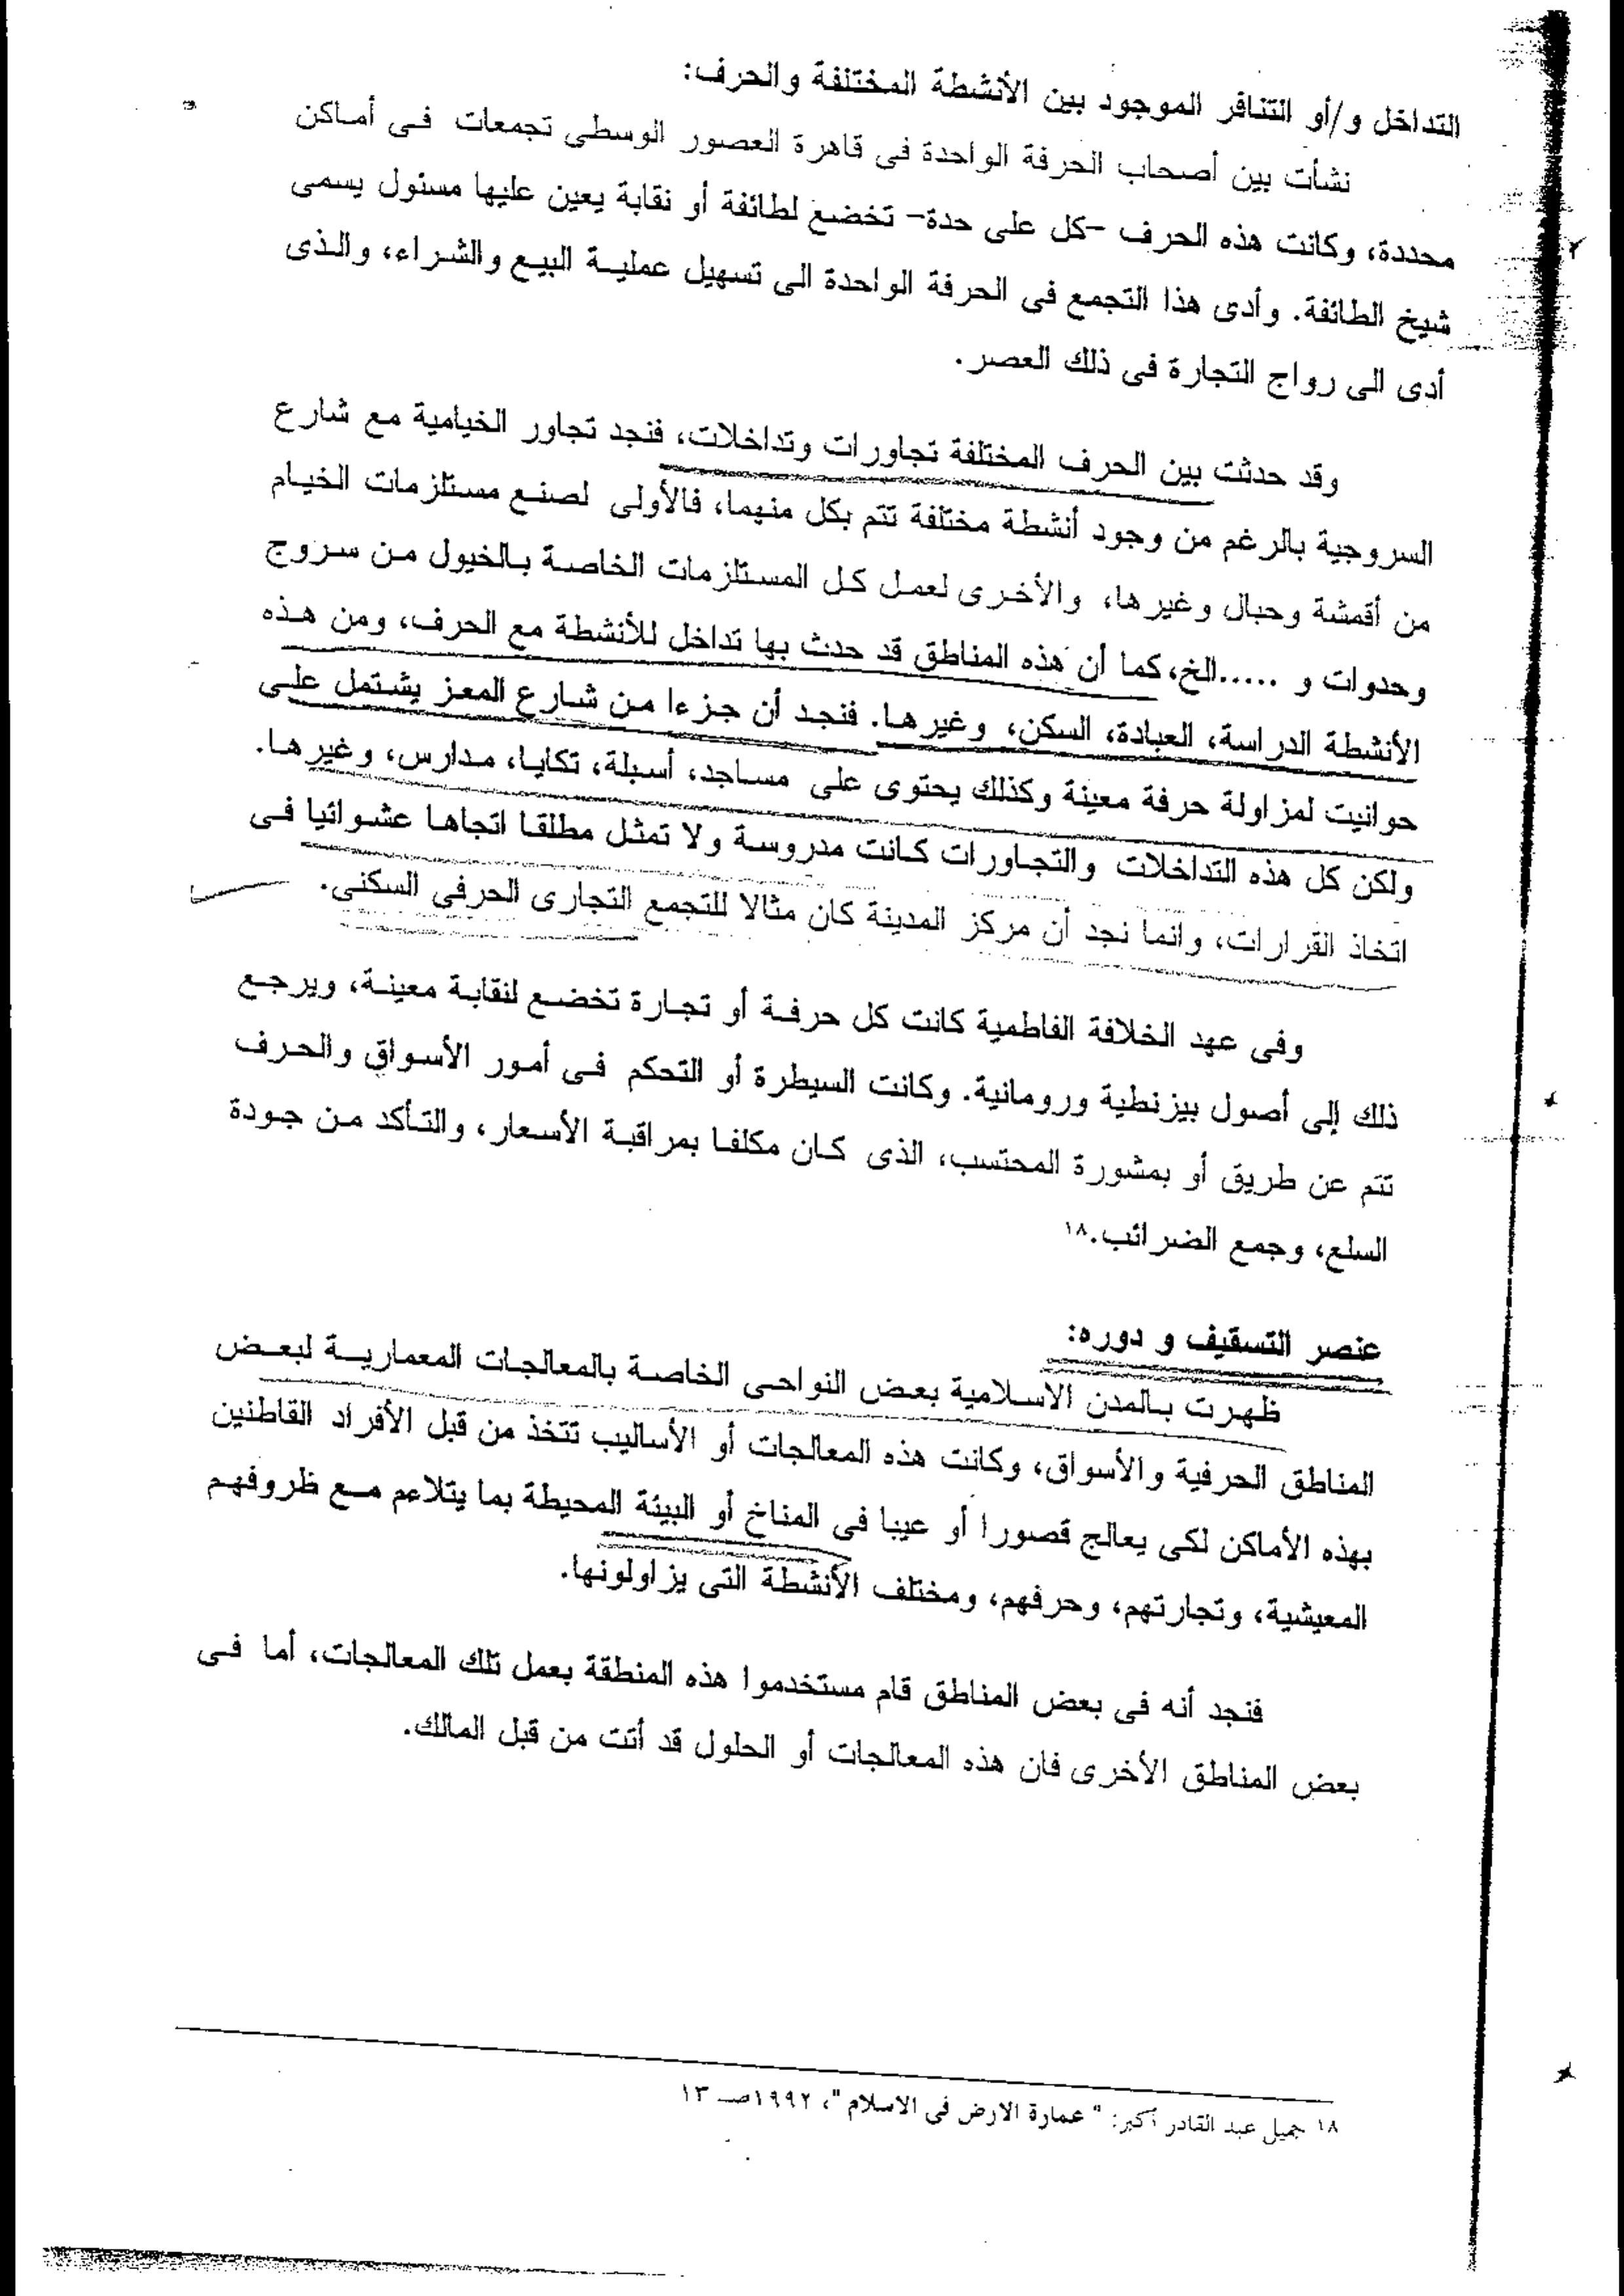 التداخل و/أو التنافر الموجود بين الأنشطة المختلفة والحرف:
نشأت بين أصحاب الحرفة الواحدة فى قاهرة العصور الوسطى تجمعات فى أماكن
محددة، وكانت هذه الحرف -كل على حدة- تخضع لطائفة أو نقابة يعين عليها مسئول يسمى
شيخ الطائفة. وأدى هذا التجمع فى الحرفة الواحدة الى تسهيل عملية البيع والشراء، والذى
أدى الى رواج التجارة فى ذلك العصر.
وقد حدثت بين الحرف المختلفة تجاورات وتداخلات، فنجد تجاور الخيامية مع شارع
السروجية بالرغم من وجود أنشطة مختلفة تتم بكل منهما، فالأولى لصنع مستلزمات الخيام
من أقمشة وحبال وغيرها، والأخرى لعمل كل المستلزمات الخاصة بالخيول من سروج
وحدوات و .....الخ، كما أن هذه المناطق قد حدث بها تداخل للأنشطة مع الحرف، ومن هذه
الأنشطة الدراسة، العبادة، السكن، وغيرها. فنجد أن جزءا من شارع المعز يشتمل على
حوانيت لمزاولة حرفة معينة وكذلك يحتوى على مساجد، أسبلة، تكايا، مدارس، وغيرها.
ولكن كل هذه التداخلات والتجاورات كانت مدروسة ولا تمثل مطلقا اتجاها عشوائيا فى
اتخاذ القرارات، وانما نجد أن مركز المدينة كان مثالا للتجمع التجارى الحرفى السكنى.
وفى عهد الخلافة الفاطمية كانت كل حرفة أو تجارة تخضع لنقابة معينة، ويرجع
ذلك إلى أصول بيزنطية ورومانية. وكانت السيطرة أو التحكم فى أمور الأسواق والحرف
تتم عن طريق أو بمشورة المحتسب، الذى كان مكلفا بمراقبة الأسعار، والتأكد من جودة
السلع، وجمع الضرائب.١٨
عنصر التسقيف و دوره:
ظهرت بالمدن الاسلامية بعض النواحى الخاصة بالمعالجات المعمارية لبعض
المناطق الحرفية والأسواق، وكانت هذه المعالجات أو الأساليب تتخذ من قبل الأفراد القاطنين
بهذه الأماكن لكى يعالج قصورا أو عيبا فى المناخ أو البيئة المحيطة بما يتلاءم مع ظروفهم
المعيشية، وتجارتهم، وحرفهم، ومختلف الأنشطة التى يزاولونها.
فنجد أنه فى بعض المناطق قام مستخدموا هذه المنطقة بعمل تلك المعالجات، أما فى
بعض المناطق الأخرى فان هذه المعالجات أو الحلول قد أتت من قبل المالك.
١٨ جميل عبد القادر أكبر: " عمارة الارض فى الاسلام "، ١٩٩٢صـ ١٣